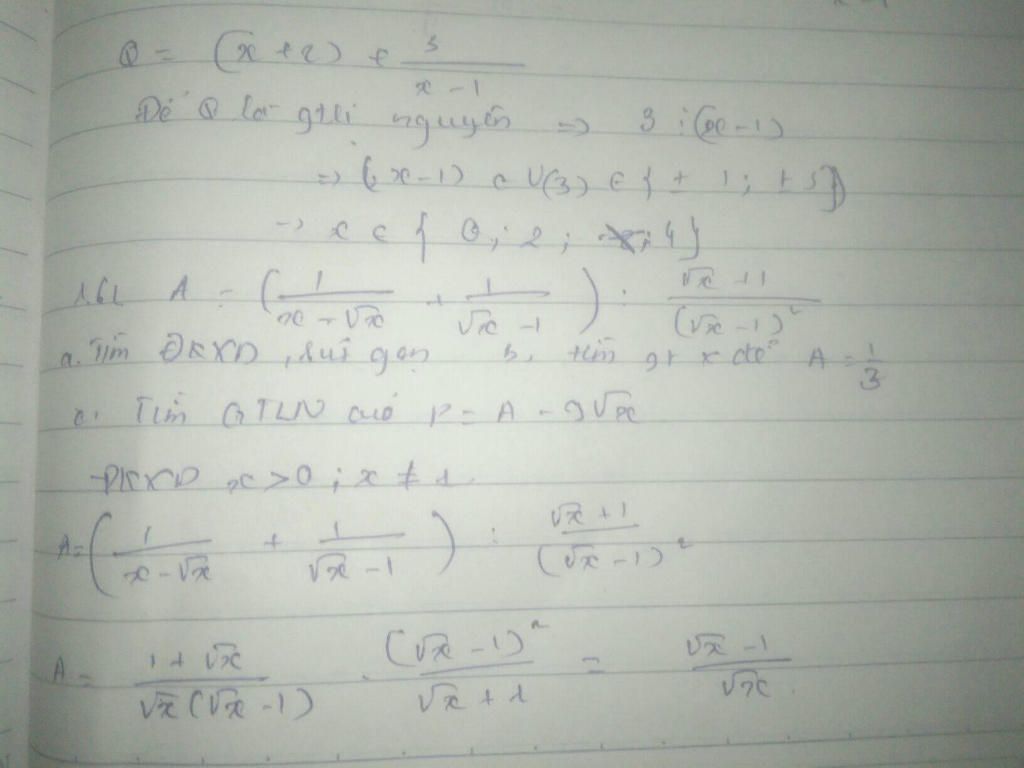 Q = (x + 2) + 3/(x - 1)
Để Q là gtri nguyên => 3 ⋮ (x - 1)
=> (x - 1) ∈ Ư(3) ∈ { ± 1 ; ± 3 }
-> x ∈ { 0 ; 2 ; 4 }
A = ( 1/(x - √x) + 1/(√x - 1) ) : (√x + 1)/(√x - 1)²
a. Tìm ĐKXD, rút gọn b, tìm gt x để A = 1/3
c. Tìm GTLN của P = A - 9√x
ĐKXD x > 0 ; x ≠ 1
A = ( 1/(x - √x) + 1/(√x - 1) ) : (√x + 1)/(√x - 1)²
A = (1 + √x)/(√x(√x - 1)) . (√x - 1)²/(√x + 1) = (√x - 1)/√x